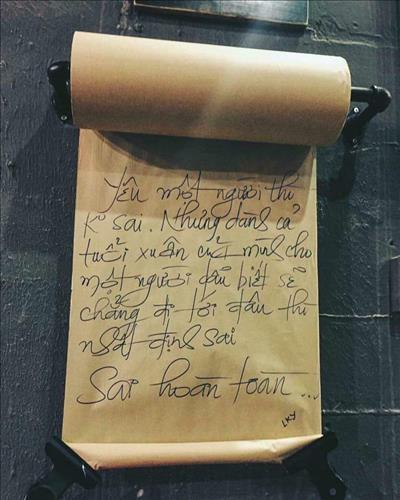 Yêu một người thì
K° sai. Nhưng dành cả
tuổi xuân của mình cho
một người dẫu biết sẽ
chẳng đi tới đâu thì
nhất định sai
Sai hoàn toàn...
LKY